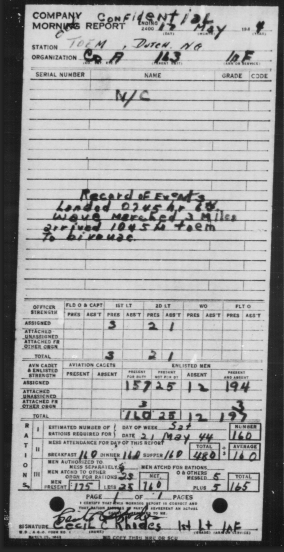 COMPANY Confidential ENDING
MORNING REPORT 2400 May 194
STATION Toem, Dutch, NG
ORGANIZATION Co A 113 Inf
SERIAL NUMBER NAME GRADE CODE
N/C
Record of Events
Landed 0745 hr 6th
wave marched 3 Miles
arrived 1045 H toem
To bivouac
OFFICER STRENGTH FLD O & CAPT 1ST LT 2D LT WO FLT O
PRES ABS'T PRES ABS'T PRES ABS'T PRES ABS'T PRES ABS'T
ASSIGNED 3 2 1
ATTACHED UNASSIGNED
ATTACHED FR OTHER ORGN
TOTAL 3 2 1
AVN CADET & ENLISTED STRENGTH AVIATION CADETS ENLISTED MEN
PRESENT ABSENT PRESENT FOR DUTY PRESENT NOT FOR DUTY ABSENT PRESENT AND ABSENT
ASSIGNED 157 25 12 194
ATTACHED UNASSIGNED
ATTACHED FR OTHER ORGN 3 3
TOTAL 160 25 12 197
RATIONS
I ESTIMATED NUMBER OF RATIONS REQUIRED FOR DAY OF WEEK Sat NUMBER
DATE 21 May 44 160
II MESS ATTENDANCE FOR DAY OF THIS REPORT TOTAL AVERAGE
BREAKFAST 160 DINNER 160 SUPPER 160 480 160
III MEN AUTHORIZED TO MESS SEPARATELY
MEN ATTCHD FOR RATIONS
MEN ATTCHD TO OTHER ORGN FOR RATIONS 25 MESSED 5
MEN PRESENT 175 LESS 25 160 PLUS 5 165
PAGE 1 OF 1 PAGES
SIGNATURE Cecil Rhodes 1st Lt Inf